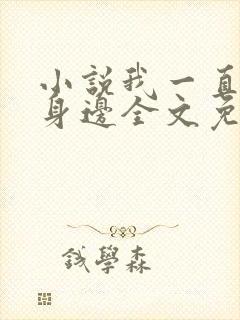 小說我一直
身邊全文免
錢學森